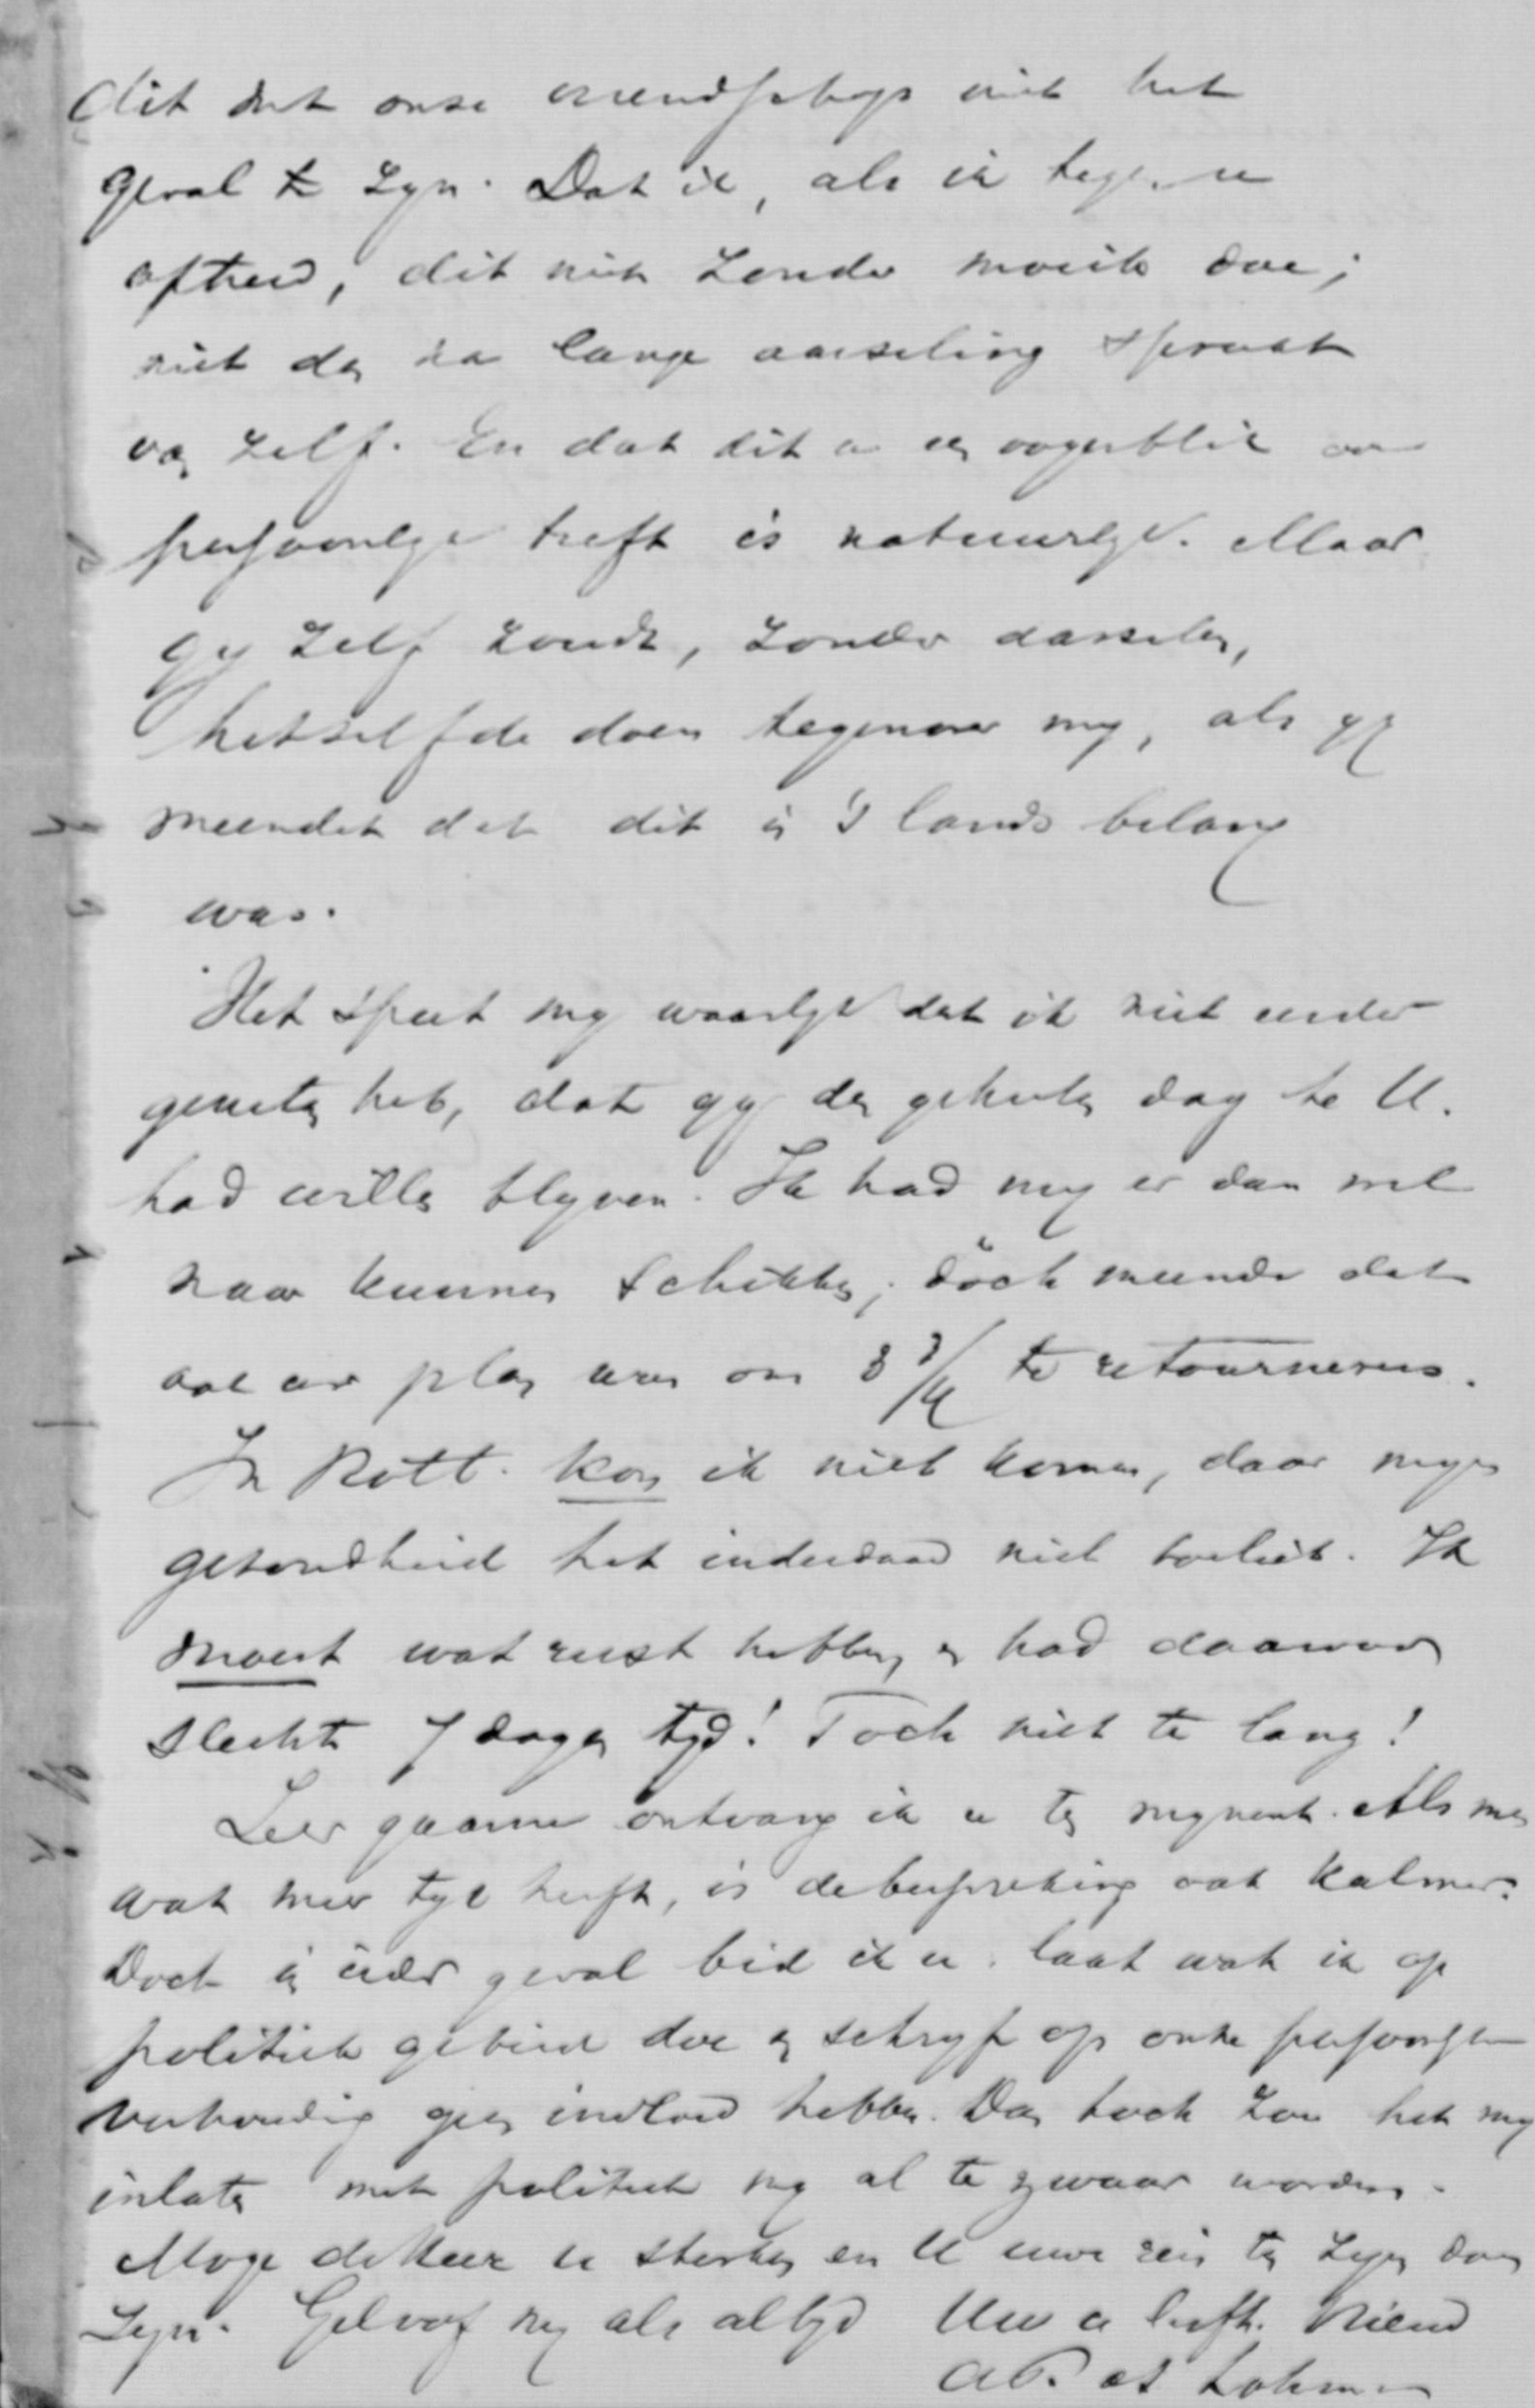 dit met onze vriendschap niet het
geval te zyn. Dat ik, als ik tegen u
optreed, dit niet zonder moeite doe;
niet dan na lange aarzeling spreekt
van zelf. En dat dit u een oogenblik
persoonlyk treft is natuurlyk. Maar
gy zelf zoudt, zonder aarzelen,
hetzelfde doen tegenover my, als gy
meendet dat dit in 's lands belang
was.
Het speet my waarlyk dat ik niet eerder
geweten heb, dat gy den geheelen dag te U.
had willen blyven. Ik had my er dan wel
naar kunnen schikken; doch meende dat
uw plan was om 8 3/4 te retourneeren.
In Rott. kon ik niet komen, daar myn
gezondheid het inderdaad niet toeliet. Ik
moest wat rust hebben, en had daarvoor
slechts 7 dagen tyd! Toch niet te lang!
Zeer gaarne ontvang ik u te mynent. Als men
wat meer tyd heeft, is de bespreking ook kalmer.
Doch in ieder geval bid ik u: laat wat ik op
politiek gebied doe en schryf op onze persoonlyke
verhouding geen invloed hebben. Dan toch zou het my
inlaten met politiek my al te zwaar worden.
Moge de Heer u sterken en U uwe reis ten zegen doen
zyn. Geloof my als altyd Uw a liefh. Vriend
AF. de S Lohman